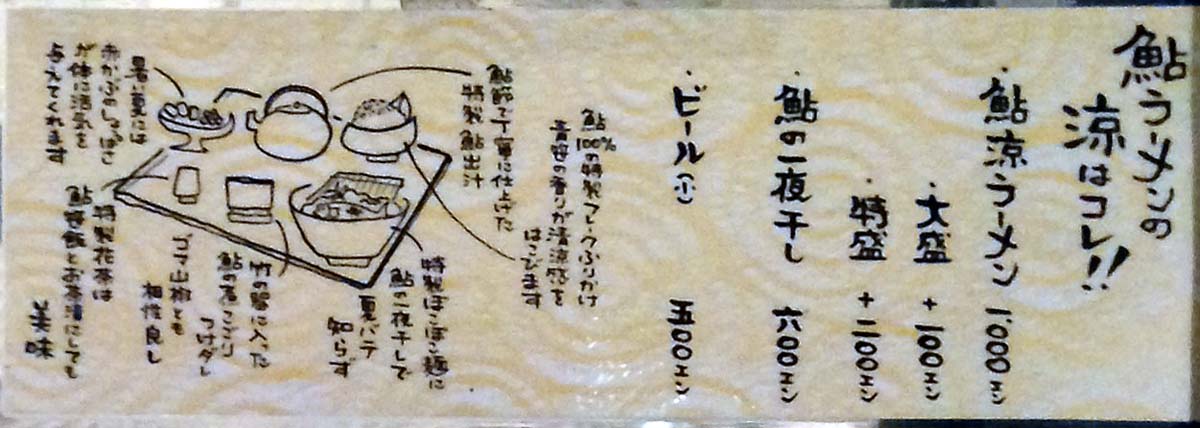 鮎ラーメンの
涼はコレ!!
・鮎涼ラーメン 1,000エン
・大盛 +一〇〇エン
・特盛 +二〇〇エン
・鮎の一夜干し 六〇〇エン
・ビール(小) 五〇〇エン
鮎100%の特製フレークふりかけ
青空の香りが清涼感を
はこびます
鮎節で丁寧に仕上げた
特製 鮎出汁
特製ぽこぽこ麺に
鮎の一夜干しで
夏バテ
知らず
竹の器に入った
鮎の煮こごり
つけダレ
ゴマ山椒とも
相性良し
暑い夏には
赤かぶのしば漬け
が体に活気を
与えてくれます
特製花茶は
鮎雑炊とお茶漬にしても
美味